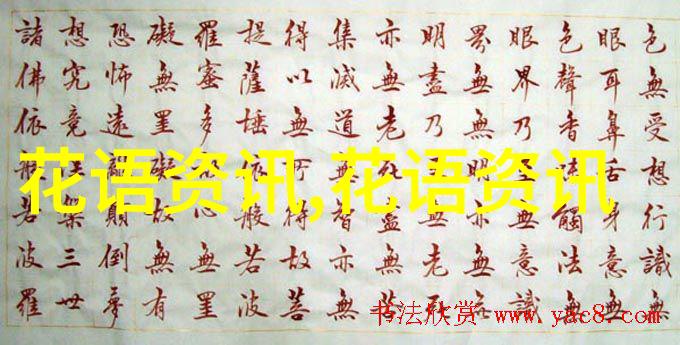 色無受想行識無
眼耳鼻舌身意無
色聲香味觸法無
眼界乃至無意識
界無無明亦無無
明盡乃至無老死
亦無老死盡無苦
集滅道無智亦無
得以無所得故菩
提薩埵依般若波
羅蜜多故心無罣
礙無罣礙故無有
恐怖遠離顛倒夢
想究竟涅槃三世
諸佛依般若波羅
花语资讯,花语资讯
书法欣赏 www.yac8.com